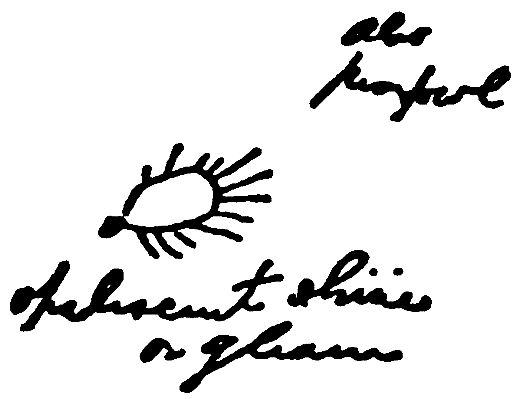 also
peafowl
opalescent shine
or gleam